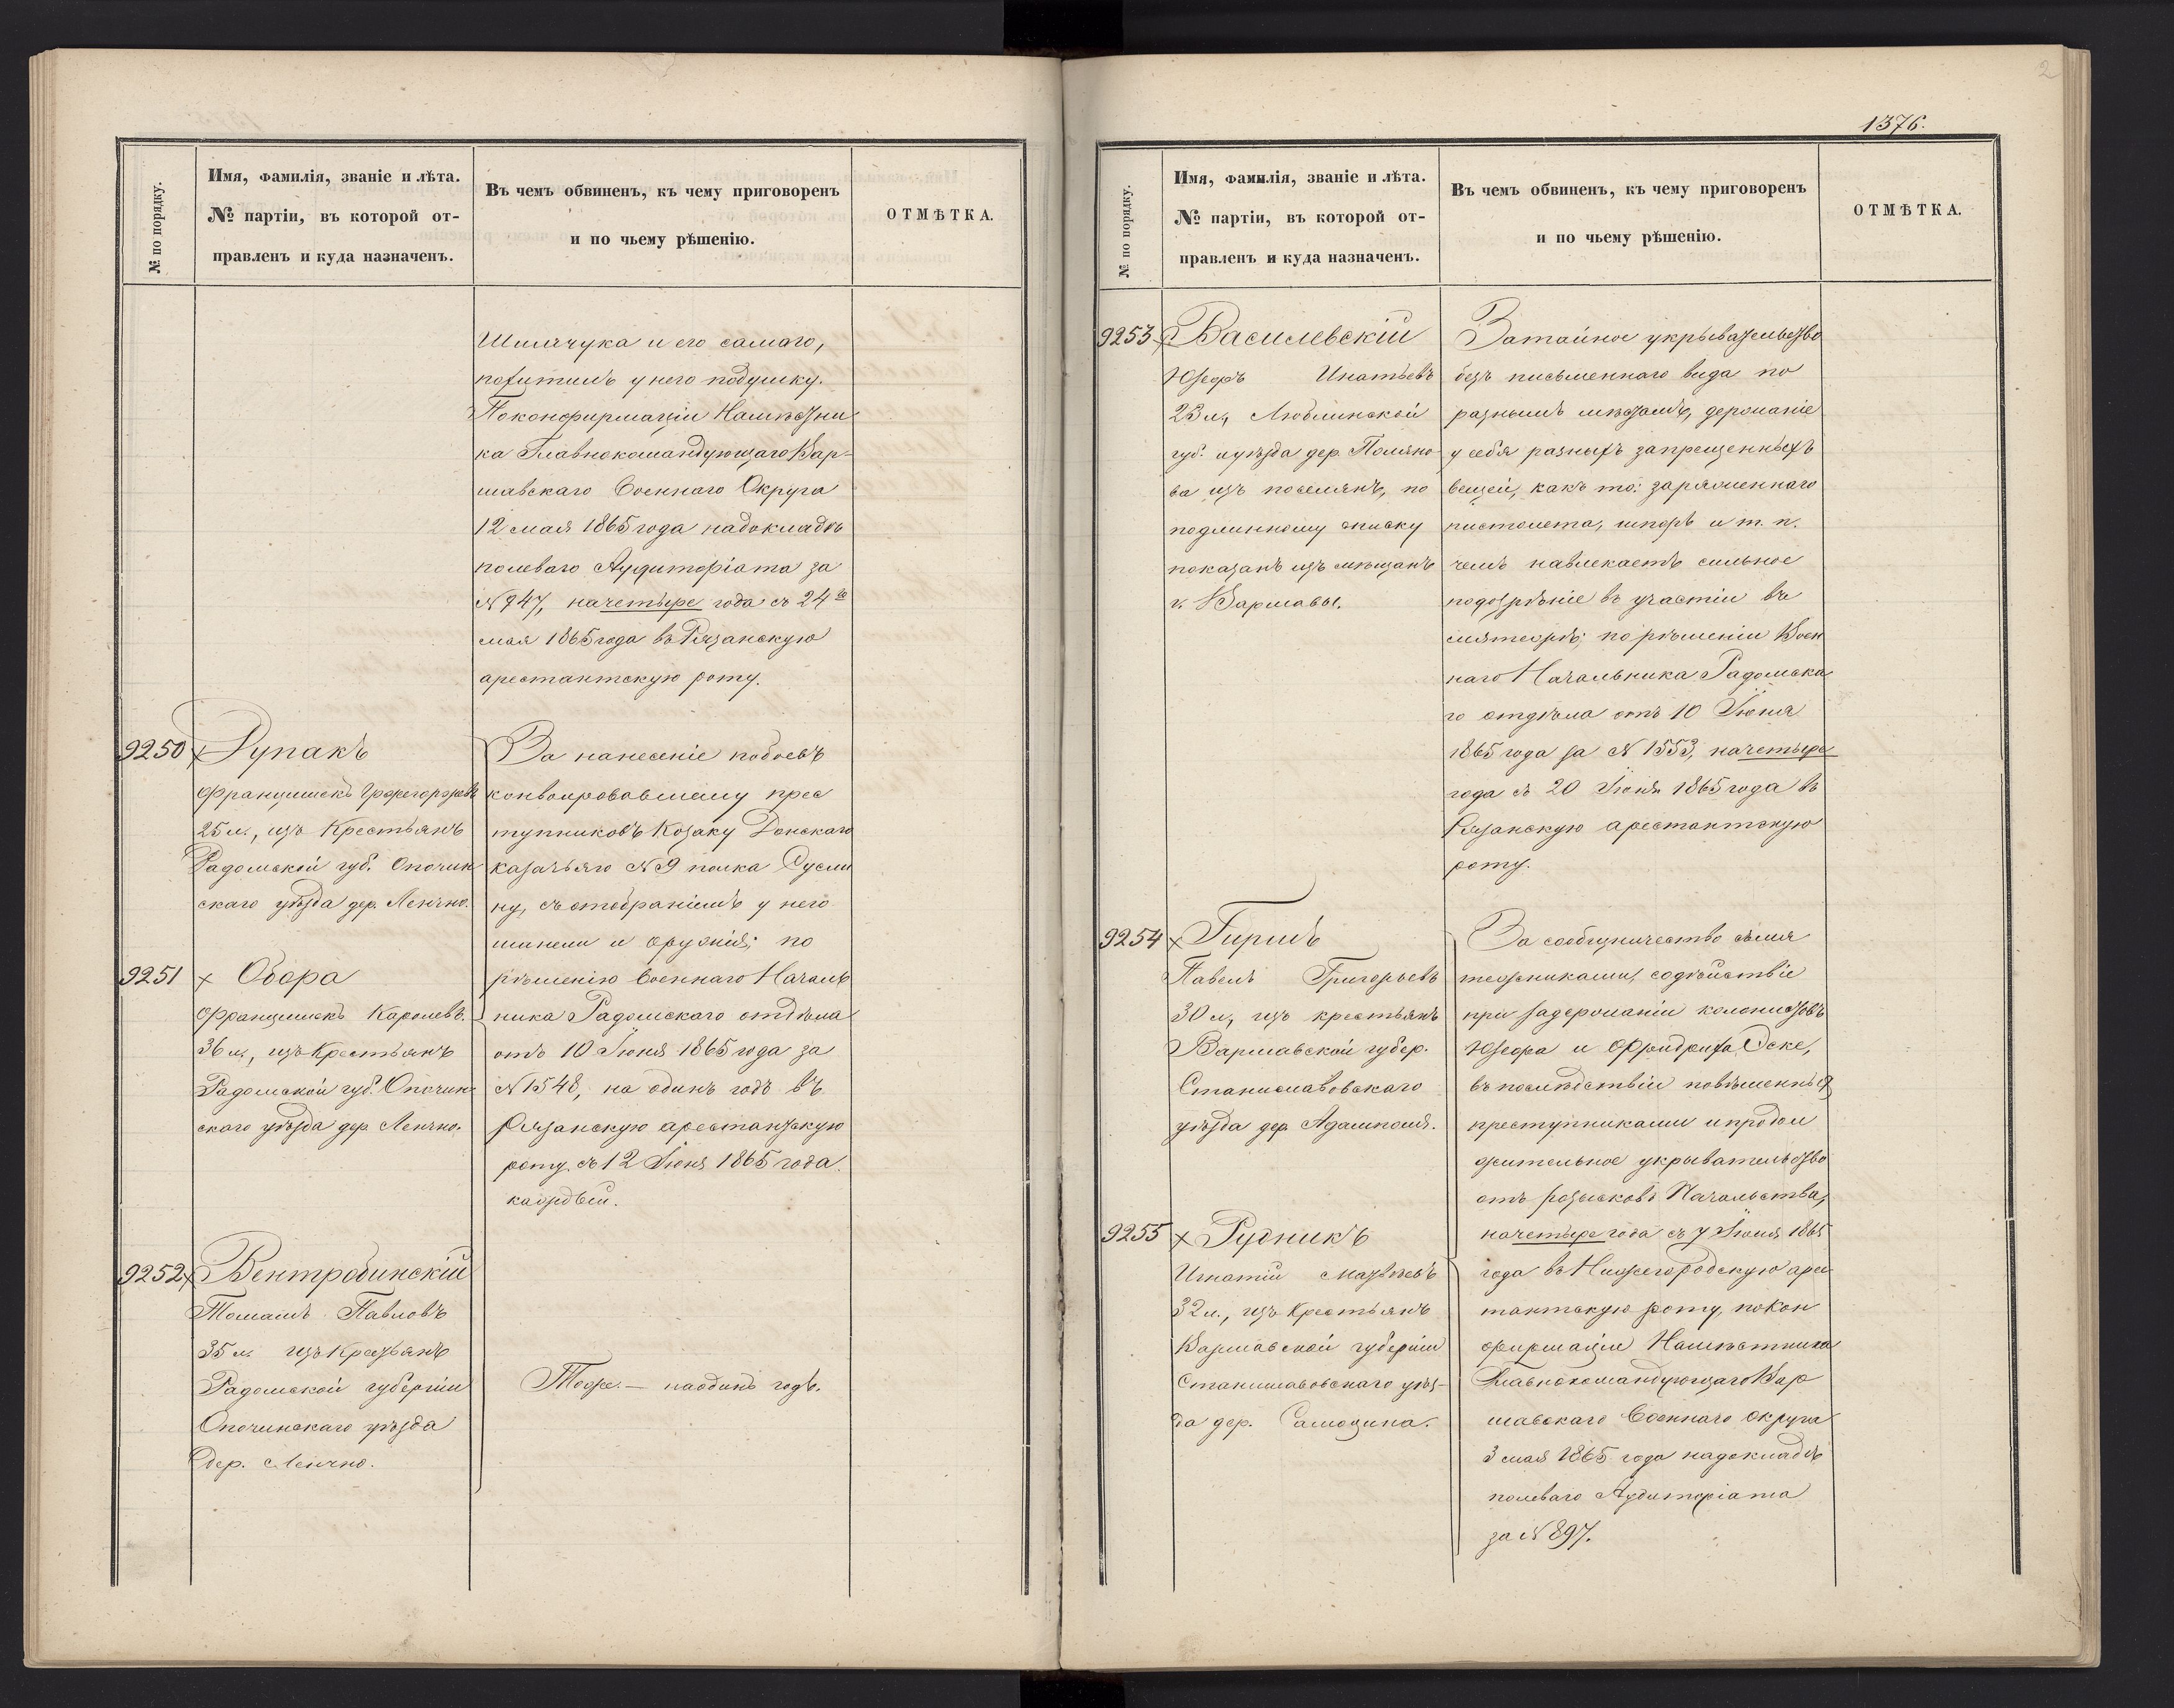 2
1376.
№ по порядку.
Имя, фамилія, званіе и лѣта.
№ партіи, въ которой от-
правленъ и куда назначенъ.
Въ чемъ обвиненъ, къ чему приговоренъ
и по чьему рѣшенію.
ОТМѢТКА.
и его самаго,
похитилъ у него подушку.
По конфирмаціи Намѣстни
ка Главнокомандующаго Вар-
шавскаго Военнаго Округа
12 мая 1865 года на докладѣ
полеваго Аудиторіата за
№ 947, на четыре года съ 24го
мая 1865 года въ Рязанскую
арестантскую роту.
9250 х Рупакъ
Францишекъ
25 л., изъ Крестьянъ
Радомской губ. Опочин
скаго уѣзда дер. Ленчно.
9251 х Обора
Францишекъ Каролевъ.
36 л., изъ Крестьянъ
Радомской губ. Опочин
скаго уѣзда дер. Ленчно.
За нанесеніе побоевъ
конвоировавшему прес
тупниковъ Козаку Донскаго
казачьяго № 9 полка Сусли
ну, съ отобраніемъ у него
шинели и оружія; по
рѣшенію Военнаго Началь
ника Радомскаго отдѣла
отъ 10 Іюня 1865 года за
№ 1548, на одинъ годъ въ
Рязанскую арестантскую
роту съ 12 Іюня 1865 года.
9252 х Вентробинскій
Томашъ Павловъ
35 л. изъ Крестьянъ
Радомской губерніи
Опочинскаго уѣзда
дер. Ленчно.
Тоже. — на одинъ годъ.
№ по порядку.
Имя, фамилія, званіе и лѣта.
№ партіи, въ которой от-
правленъ и куда назначенъ.
Въ чемъ обвиненъ, къ чему приговоренъ
и по чьему рѣшенію.
ОТМѢТКА.
9253 х Василевскій
Юзефъ Игнатьевъ
23 л., Люблинской
губ. и уѣзда дер.
ва изъ поселянъ, по
подлинному списку
показанъ изъ мѣщанъ
г. Варшавы.
За тайное укрывательство
безъ письменнаго вида по
разнымъ мѣстамъ, держаніе
у себя разныхъ запрещенныхъ
вещей, какъ то: заряженнаго
пистолета, шпоръ и т. п.
чемъ навлекаетъ сильное
подозрѣніе въ участіи въ
мятежѣ; по рѣшеніи Воен
наго Начальника Радомска
го отдѣла отъ 10 Іюня
1865 года за № 1553, на четыре
года съ 20 Іюня 1865 года въ
Рязанскую арестантскую
роту.
9254 х
Павелъ Григорьевъ
30 л., изъ крестьянъ
Варшавской губер.
Станиславовскаго
уѣзда дер. Адамполя.
9255 х Рудникъ
Игнатій
32 л., изъ Крестьянъ
Варшавской губерніи
Станиславовскаго уѣз-
да дер.
За сообщничество съ мя
тежниками, содѣйствіе
при задержаніи колонистовъ
Юзефа и Фридриха Оске,
въ послѣдствіи повѣшенныхъ
преступниками и продол
жительное укрывательство
отъ розысковъ Начальства,
на четыре года съ 7 Іюня 1865
года въ Нижегородскую арес
тантскую роту, по кон
фирмаціи Намѣстника
Главнокомандующаго Вар
шавскаго Военнаго округа
3 мая 1865 года на докладѣ
полеваго Аудиторіата
за № 897.